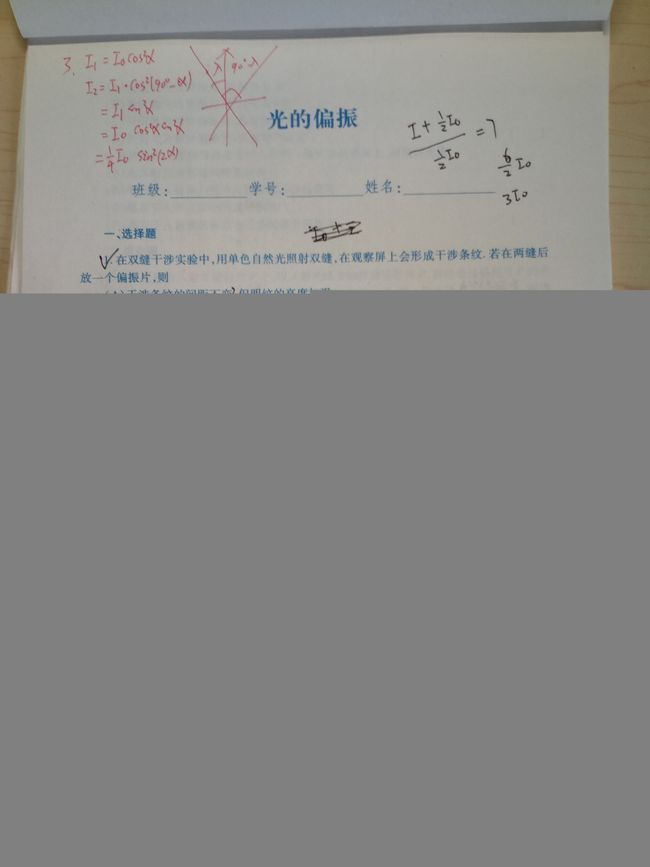 3. I₁ = I₀ cos²α
I₂ = I₁·cos²(90°-α)
= I₁ sin²α
= I₀ cos²α sin²α
= 1/4 I₀ sin²(2α)
λ 90°-λ
光的偏振
(I + 1/2 I₀) / (1/2 I₀) = 7
6/2 I₀
3I₀
班级: 学号: 姓名:
一、选择题
1. 在双缝干涉实验中,用单色自然光照射双缝,在观察屏上会形成干涉条纹. 若在两缝后
放一个偏振片,则